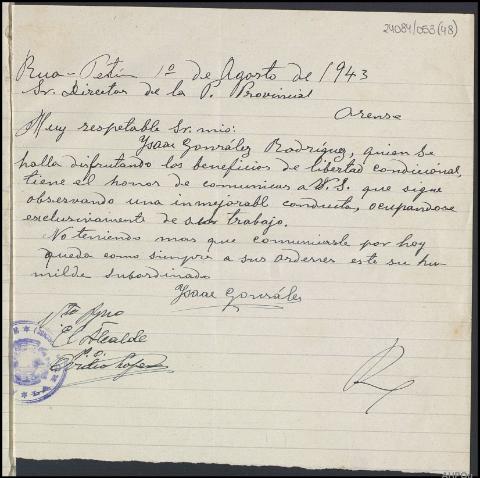 24084/053(48)
Rua-Petin 1º de Agosto de 1943
Sr. Director de la P. Provincial
Orense
Muy respetable Sr. mio:
Ysaac González Rodríguez, quien se
halla disfrutando los beneficios de libertad condicional,
tiene el honor de comunicar a V.S. que sigue
observando una inmejorable conducta, ocupandose
exclusivamente de su trabajo.
No teniendo mas que comunicarle por hoy
queda como siempre a sus ordenes este su hu
milde subordinado
Ysaac González
Vto Bno
El Alcalde
P.O.
Ovidio López
R